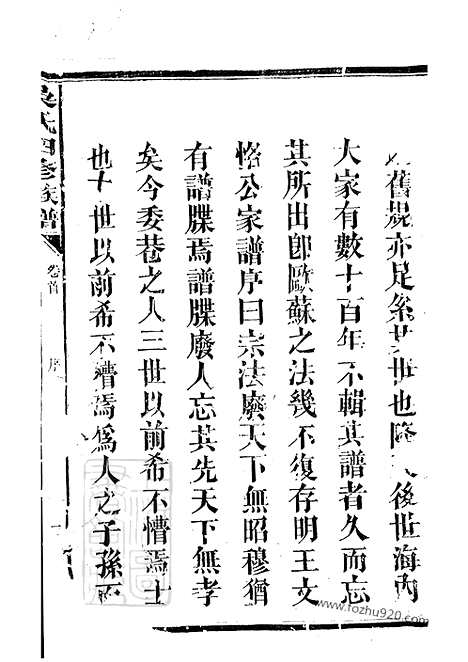 舊規亦足系其世也隆後世海內
大家有數十百年不輯其譜者久而忘
其所出即歐蘇之法幾不復存明王文
恪公家譜序曰宗法廢天下無昭穆猶
有譜牒焉譜牒廢人忘其先天下無孝
矣今委巷之人三世以前希不懵焉士
也十世以前希不懵焉為人之子孫而
吳氏四修族譜
卷首
序
www.fozhu920.com